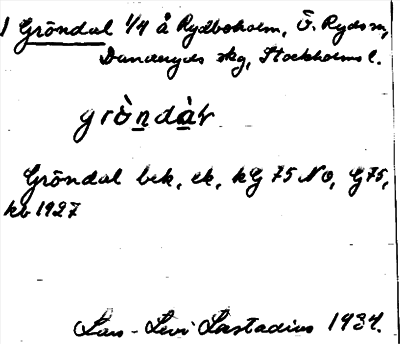 1 Gröndal 1/4 å Rydboholm, Ö. Ryds sn,
Danderyds skg, Stockholms l.
gròndàr
Gröndal bek, ek, kG 75 NO, G75,
kb 1927
Lars-Levi Læstadius 1934.